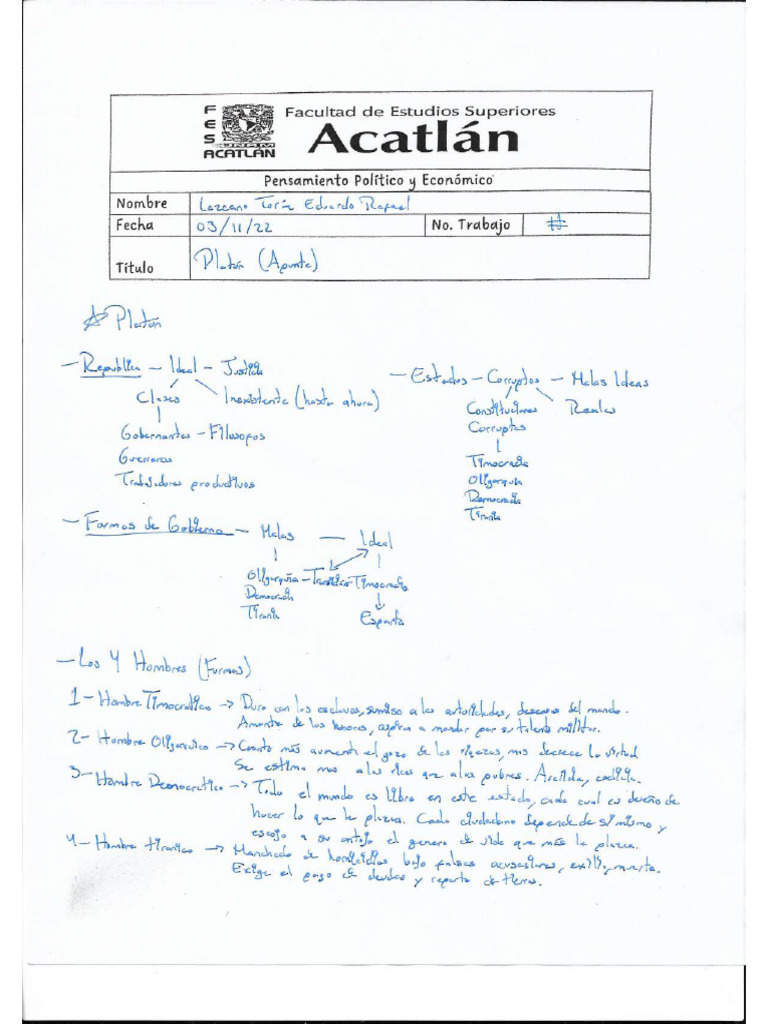 FES
UNAM
ACATLÁN
Facultad de Estudios Superiores
Acatlán
Pensamiento Político y Económico
Nombre Lazcano Turín Eduardo Rafael
Fecha 03/11/22 No. Trabajo #
Título Platón (Apunte)
Platón
- República - Ideal - Justicia
Clases Inexistente (hasta ahora)
Gobernantes - Filosofos
Guerreros
Trabajadores productivos
- Estados - Corruptos - Malas Ideas
Constituciones Reales
Corruptas
Timocracia
Oligarquia
Democracia
Tirania
- Formas de Gobierno - Malas — Ideal
Oligarquia - Transicion - Timocracia
Democracia
Tirania Esparta
- Los 4 Hombres (Formas)
1- Hombre Timocratico → Duro con los esclavos, sumiso a las autoridades, deseoso del mando.
Amante de los honores, aspira a mandar por su talento militar.
2- Hombre Oligarquico → Cuanto más aumenta el gozo de las riquezas, mas decrece la virtud
Se estima mas a los ricos que a los pobres. codicia.
3- Hombre Democratico → Todo el mundo es libre en este estado, cada cual es dueño de
hacer lo que le plazca. Cada ciudadano depende de si mismo y
escoje a su antojo el genero de vida que más le plazca.
4- Hombre tiranico → Manchado de homicidios bajo falsas acusaciones, exilio, muerte.
Exige el pago de deudas y reparto de tierras.